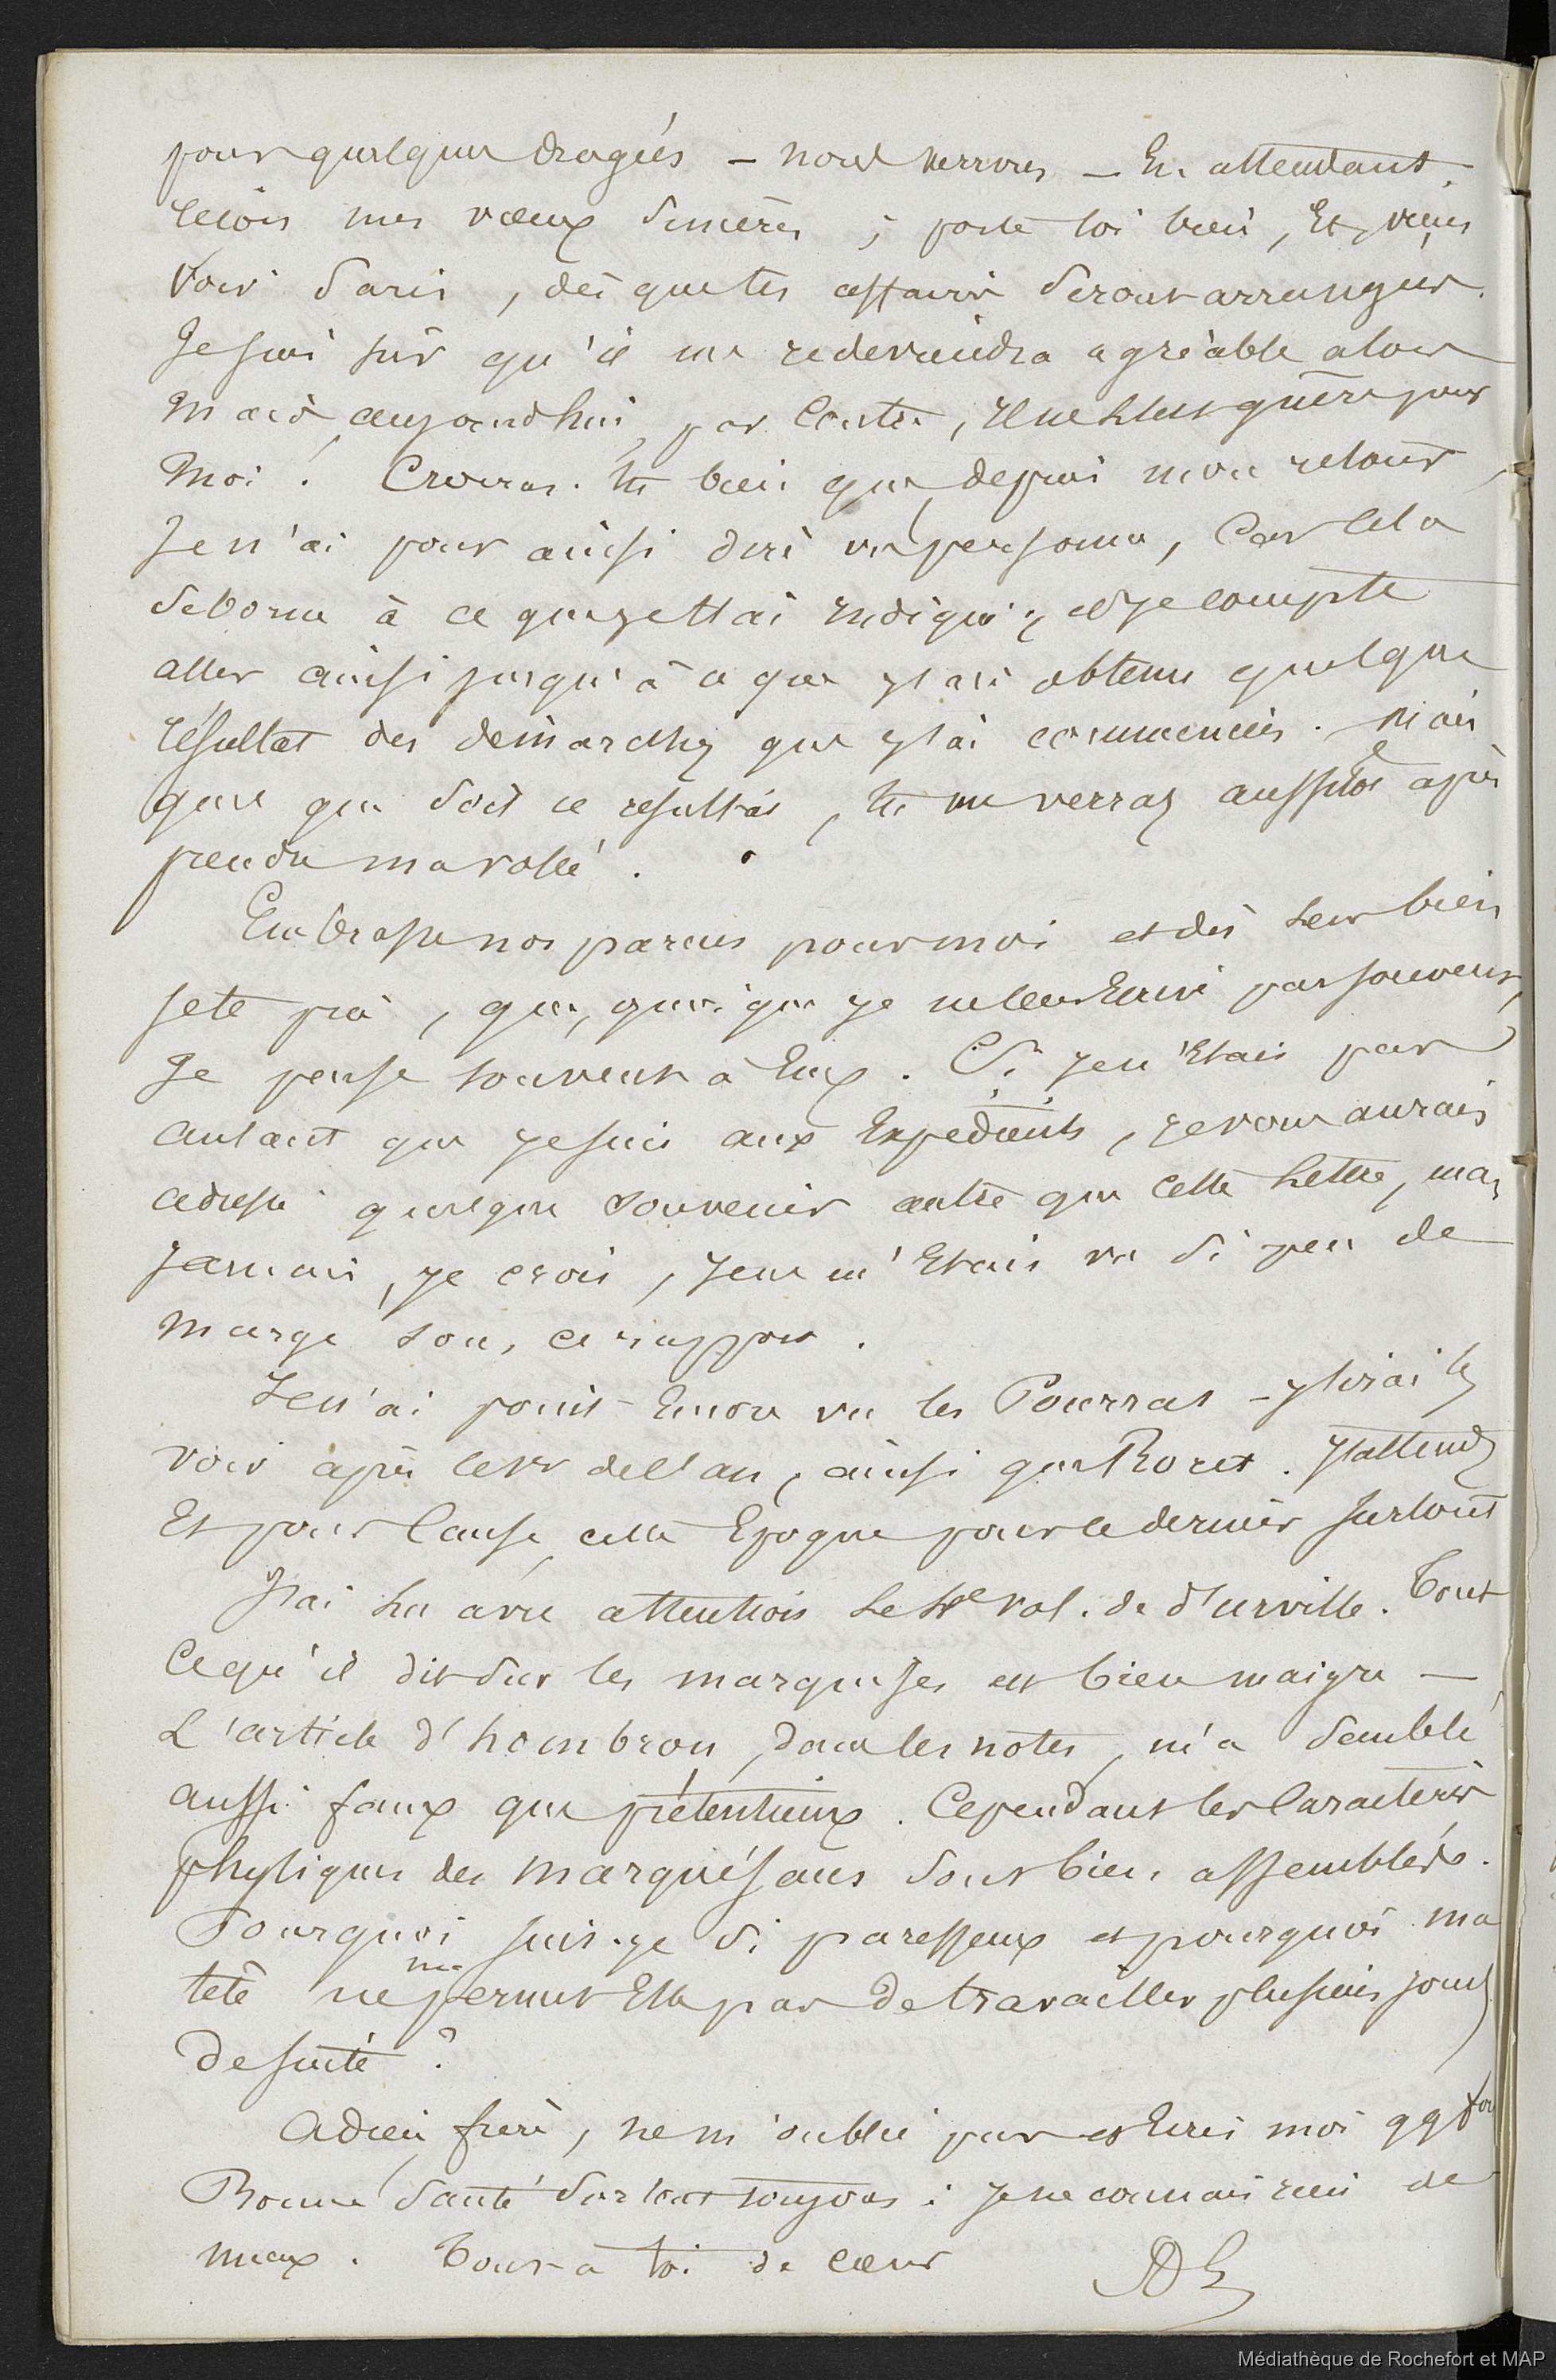 pour quelques dragées – nous verrons – En attendant,
reçois mes vœux sincères ; porte toi bien, Et viens
voir Paris, dès que tes affaires seront arrangées.
Je suis sûr qu'il me redeviendra agréable alors
Mais, aujourd'hui, par Contre, Il ne l'est guère pour
Moi ! Croiras-tu bien que, depuis mon retour,
Je n'ai pour ainsi dire vu personne, Car cela
se borne à ce que je t'ai indiqué, et je compte
aller ainsi jusqu'à ce que j'aie obtenu quelque
résultat des démarches que j'ai commencées. Mais
quel que soit ce résultat, tu me verras aussitôt après
prendre ma volée.
Embrasse nos parens pour moi et dis leur bien
je te prie, que, quoique je ne leur Ecrive pas souvent,
Je pense souvent à Eux. Si je n'Etais pas
autant que je suis aux Expédients, je vous aurais
adressé quelque souvenir autre que cette lettre, mais
jamais, je crois, je ne m'Etais vu si peu de
marge sous ce rapport.
Je n'ai point Encore vu les Pourrat – j'irai les
voir après le 1er de l'an, ainsi que Roret. J'attends
Et pour Cause, cette Epoque pour le dernier surtout
J'ai lu avec attention le 4e vol. de d'urville. Tout
Ce qu'il dit sur les marquises est bien maigre —
L'article d'hombron, dans les notes, m'a semblé
aussi faux que prétentieux. Cependant les Caractères
physiques des marquésans sont bien assemblés.
Pourquoi suis-je si paresseux et pourquoi ma
tête ne me permet Elle pas de travailler plusieurs jours
de suite ?
Adieu frère, ne m'oublie pas et Ecris moi qq fois
Bonne santé surtout toujours : je ne connais rien de
mieux. Tout à toi de cœur